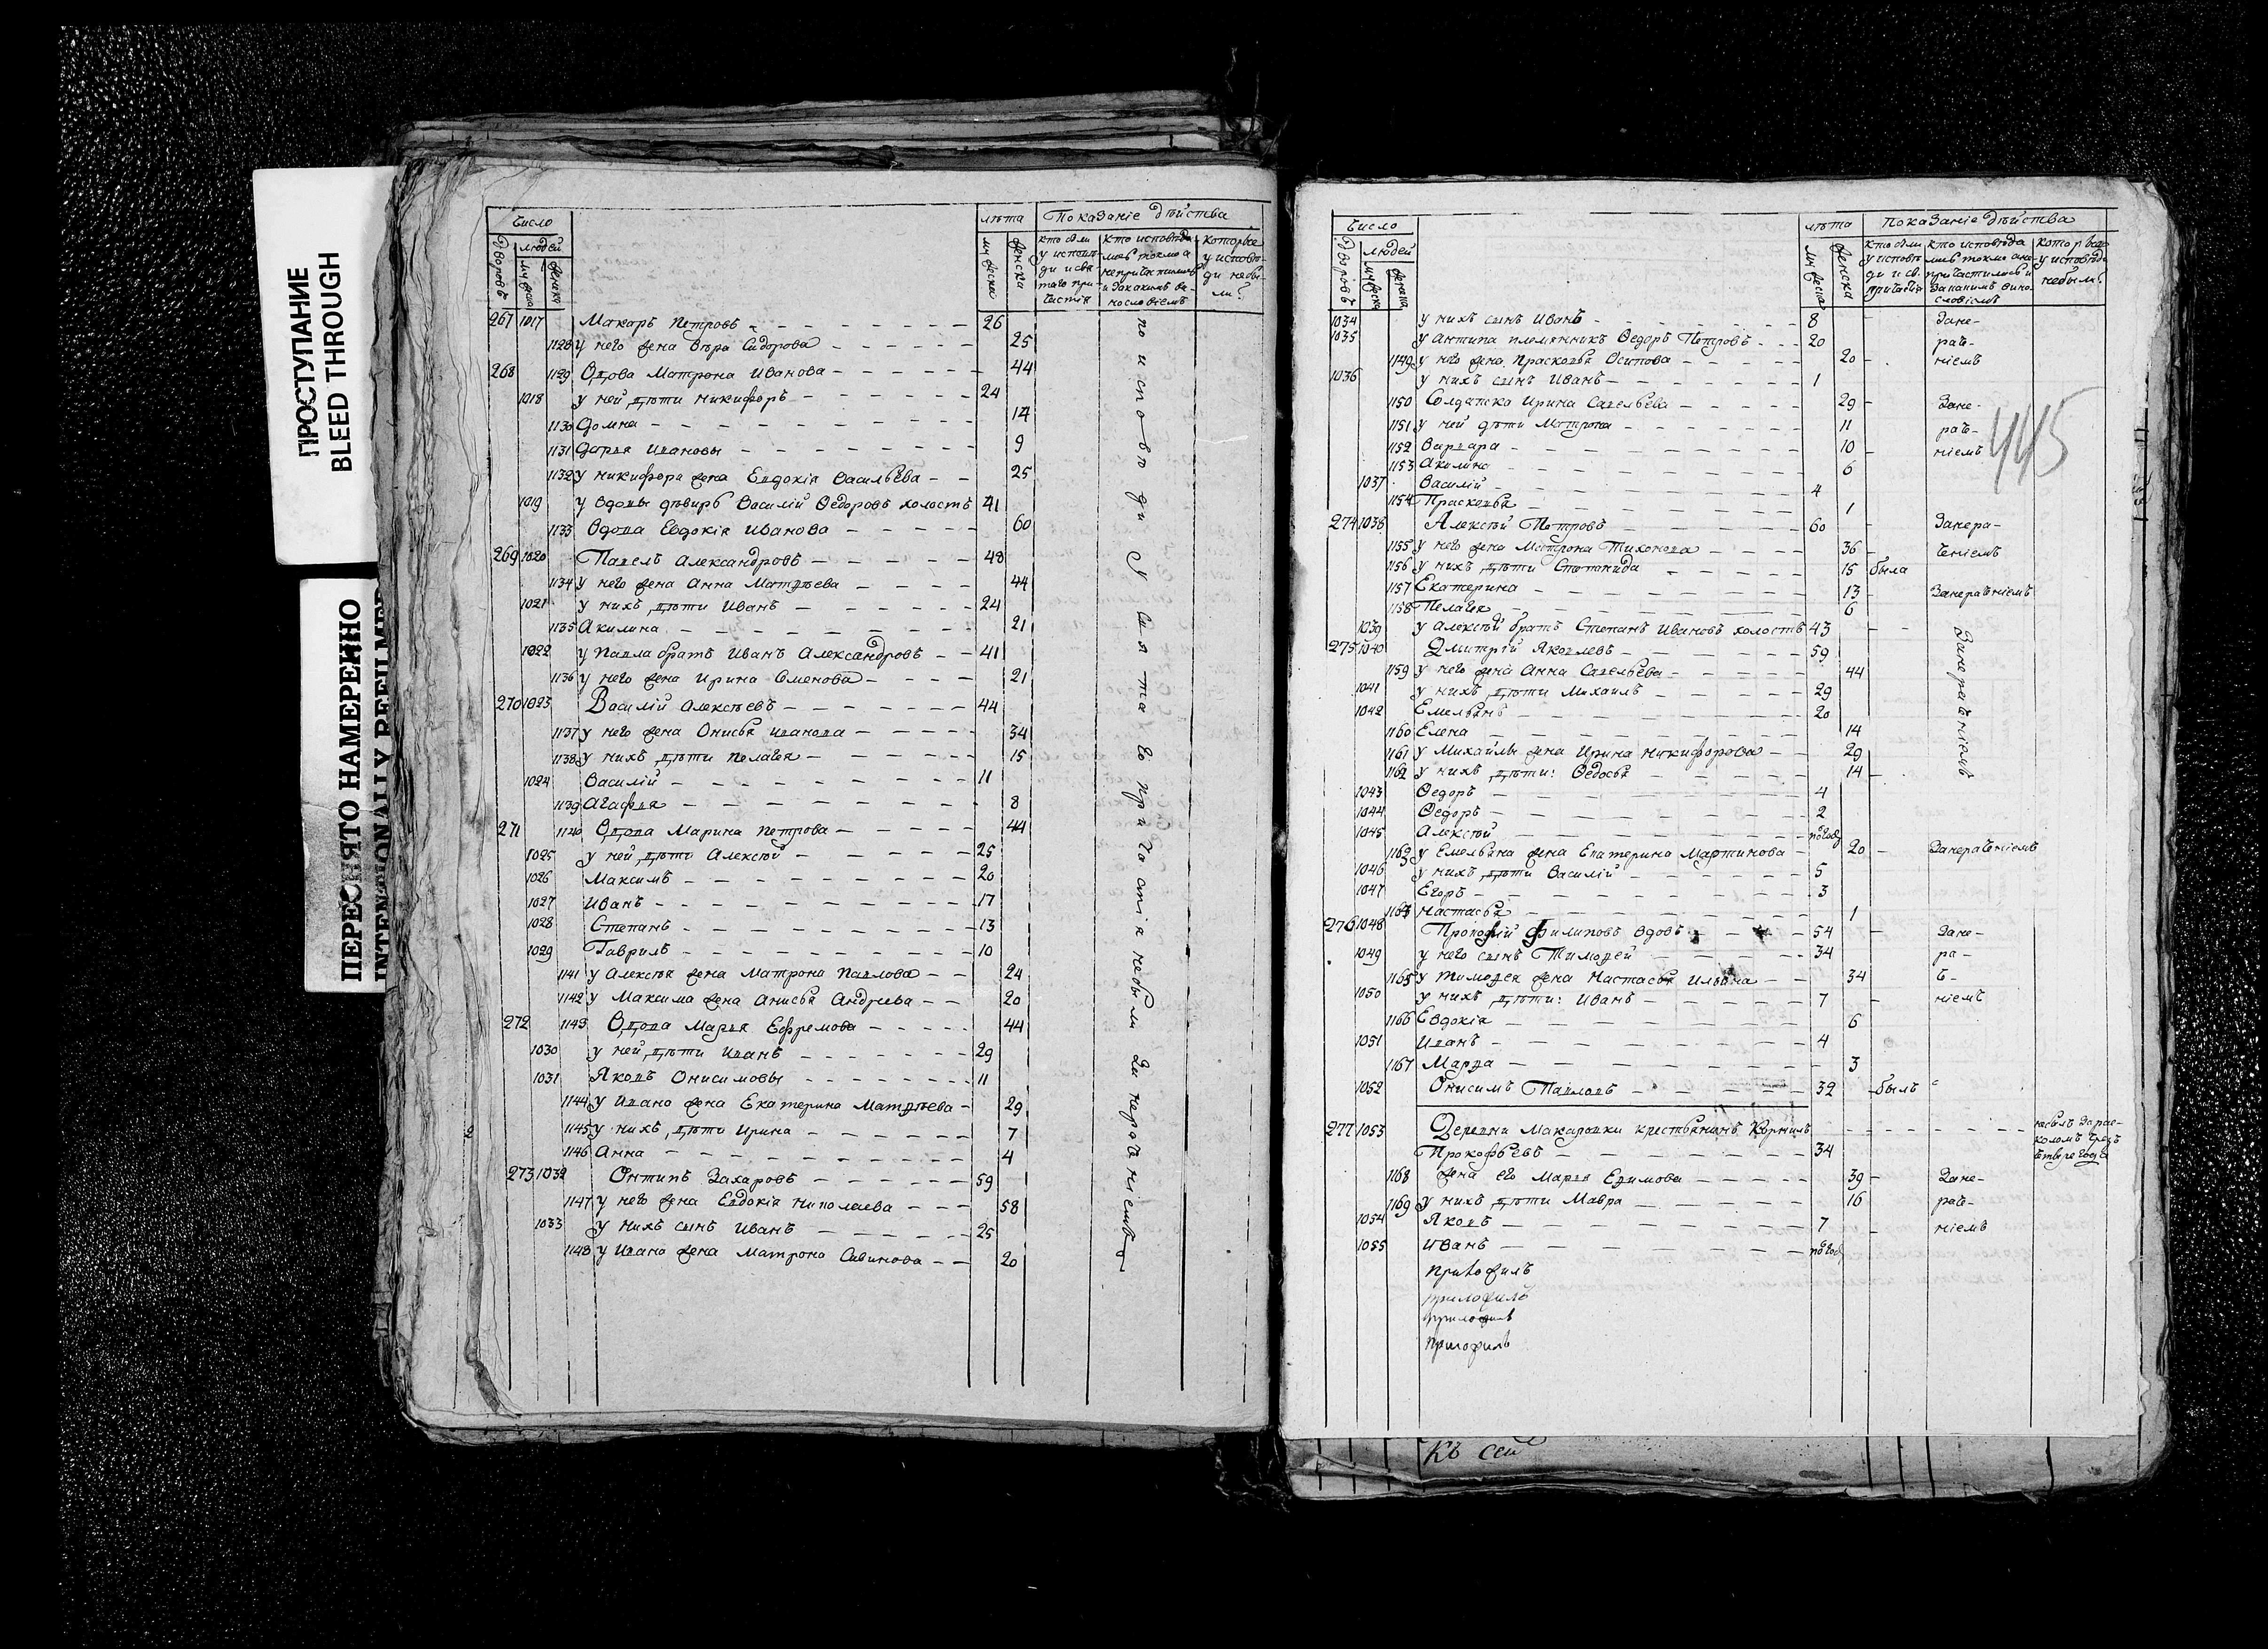 ПРОСТУПАНИЕ
BLEED THROUGH
ПЕРЕСНЯТО НАМЕРЕННО
INTENTIONALLY REFILMED
Число лѣта Показаніе дѣйства
Дворовъ людей
267 1017 Макаръ Петровъ 26
1128 у него жена Вѣра Сидорова 25
268 1129 Вдова Матрона Иванова 44
1018 у ней дѣти Никифоръ 24
1130 Домна 14
1131 Дарья Ивановы 9
1132 у Никифора жена Евдокія Васильева 25
1019 у Вдовы дѣвирь Василій Ѳедоровъ холостъ 41
1133 Вдова Евдокія Иванова 60
269 1020 Павелъ Александровъ 48
1134 у него жена Анна Матвѣева 44
1021 у нихъ дѣти Иванъ 24
1135 Акилина 21
1022 у Павла братъ Иванъ Александровъ 41
1136 у него жена Ирина Семенова 21
270 1023 Василій Алексѣевъ 44
1137 у него жена Онисья Иванова 34
1138 у нихъ дѣти Пелагея 15
1024 Василій 11
1139 Агафья 8
271 1140 Вдова Марина Петрова 44
1025 у ней дѣти Алексѣй 25
1026 Максимъ 20
1027 Иванъ 17
1028 Степанъ 13
1029 Гаврилъ 10
1141 у Алексѣя жена Матрона Павлова 24
1142 у Максима жена Анисья Андреева 20
272 1143 Вдова Марья Ефремова 44
1030 у ней дѣти Иванъ 29
1031 Яковъ Онисимовы 11
1144 у Ивана жена Екатерина Матвѣева 29
1145 у нихъ дѣти Ирина 7
1146 Анна 4
273 1032 Онтипъ Захаровъ 59
1147 у него жена Евдокія Николаева 58
1033 у нихъ сынъ Иванъ 25
1148 у Ивана жена Матрона Савинова 20
по исповѣди у святаго причастія небыли за нераченіемъ
Число лѣта Показаніе дѣйства
Дворовъ людей
445
1034 у нихъ сынъ Иванъ 8 Зане-
1035 у Антипа племянникъ Ѳедоръ Петровъ 20 раче-
1149 у него жена Прасковья Осипова 20 ніемъ
1036 у нихъ сынъ Иванъ 1
1150 Солдатка Ирина Савельева 29 Зане-
1151 у ней дѣти Матрона 11 раче-
1152 Варвара 10 ніемъ
1153 Акилина 6
1037 Василій 4
1154 Прасковья 1
274 1038 Алексѣй Петровъ 60 Занера-
1155 у него жена Матрона Тихонова 36 ченіемъ
1156 у нихъ дѣти Степанида 15 была
1157 Екатерина 13 Занераченіемъ
1158 Пелагея 6
1039 у Алексѣй братъ Степанъ Ивановъ холостъ 43
275 1040 Дмитрій Яковлевъ 59
1159 у него жена Анна Савельева 44
1041 у нихъ дѣти Михаилъ 29
1042 Емельянъ 20
1160 Елена 14
1161 у Михайлы жена Ирина Никифорова 29
1162 у нихъ дѣти: Ѳедосья 14
Занераченіемъ
1043 Ѳедоръ 4
1044 Ѳедоръ 2
1045 Алексѣй полгода
1163 у Емельяна жена Екатерина Мартинова 20 Занераченіемъ
1046 у нихъ дѣти Василій 5
1047 Егоръ 3
1164 Настасья 1
276 1048 Прокофій Филиповъ Вдовъ 54 Зане-
1049 у него сынъ Тимофей 34 ра-
1165 у Тимофея жена Настасья Ильина 34 че-
1050 у нихъ дѣти: Иванъ 7 ніемъ
1166 Евдокія 6
1051 Иванъ 4
1167 Марфа 3
1052 Онисимъ Павловъ 32 былъ
277 1053 Деревни Макаровки крестьянинъ Корнилъ
Прокофьевъ 34
небылъ зарас-
коломъ чрезъ
четыре года
1168 жена его Марья Ефимова 39 Зане-
1169 у нихъ дѣти Мавра 16 раче-
1054 Яковъ 7 ніемъ
1055 Иванъ полгод
приложилъ
приложилъ
приложилъ
приложилъ
Къ сей